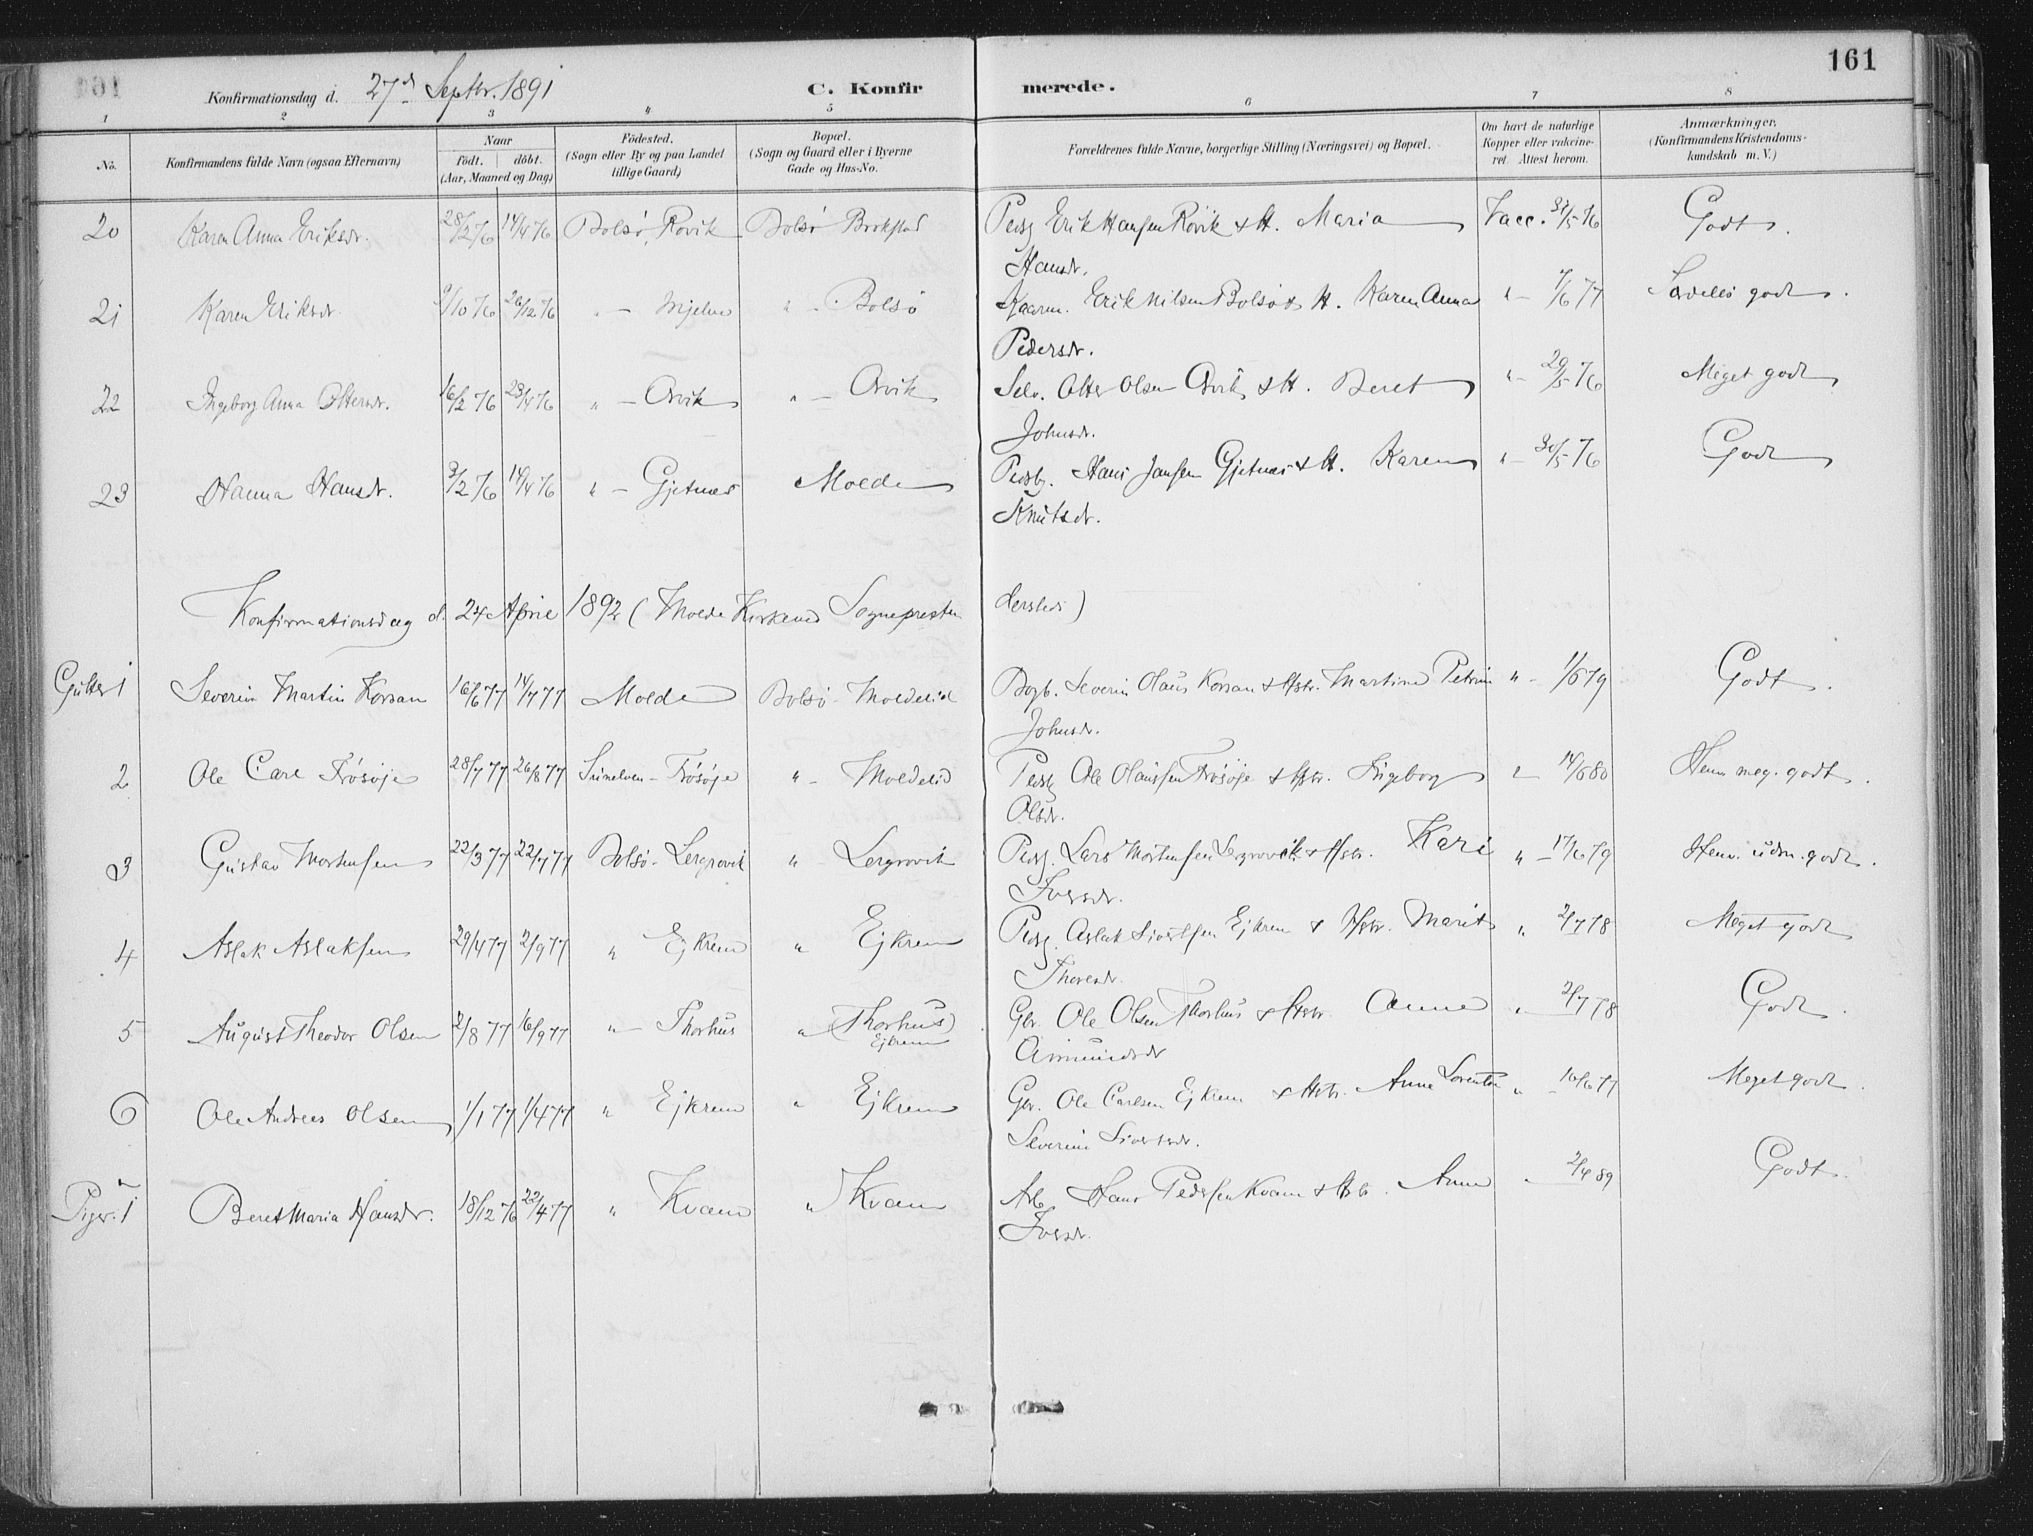 161
Konfirmationsdag d. 27de Septbr. 1891 C. Konfirmerede.
1 2 3 4 5 6 7 8
No. Konfirmandens fulde Navn (ogsaa Efternavn) Naar födt. döbt. (Aar, Maaned og Dag) Födested. (Sogn eller By og paa Landet tillige Gaard) Bopæl. (Sogn og Gaard eller i Byerne Gade og Hus-No. Forældrenes fulde Navne, borgerlige Stilling (Næringsvei) og Bopæl. Om havt de naturlige Kopper eller vakcineret. Attest herom. Anmærkninger. (Konfirmandens Kristendomskundskab m. V.)
20 Karen Anna Eriksdr. 28/2 76 14/4 76 Bolsö, Rövik Bolsö Brokstad Erik Hansen Rövik & H. Maria Vacc. 31/5 76 Godt.
Hansdr.
21 Karen Eriksdr. 9/10 76 26/12 76 " - Mjelve " - Bolsö Erik Nilsen Bolsö & H. Karen Anna " - 7/6 77 godt.
Pedersdr.
22 Ingeborg Anna Ottersdr. 16/2 76 23/4 76 " - Orvik " - Orvik Selv. Otter Olsen Orvik & H. Beret " - 29/5 76 Meget godt
Johnsdr.
23 Hanna Hansdr. 3/2 76 14/4 76 " - Gjetnes Molde Hans Jansen Gjetnes & H. Karen " - 30/5 76 Godt
Knutsdr.
Konfirmationsdag d. 24 April 1892 (Molde Kirke ved Sognepresten dersteds)
Gutter 1 Severin Martin Korsan 16/6 77 14/7 77 Molde Bolsö - Moldelid Severin Olaus Korsan & Hstr. Martine Petrine " - 1/6 79 Godt.
Johnsdr.
2 Ole Carl Frösöje 28/7 77 26/8 77 Sunelven - Frösöje " - Moldelid Ole Olaussen Frösöje & Hstr. Ingeborg " 14/6 80 meg. godt.
Olsdr.
3 Gustav Mortensen 22/3 77 22/7 77 Bolsö - Lergrovik " Lergrovik Lars Mortensen Lergrovik & Hstr. Kari " - 17/6 79 godt.
Iversdr.
4 Aslak Aslaksen 29/4 77 2/9 77 " Ejkrem " Ejkrem Aslak Sivertsen Ejkrem & Hstr. Marit " 2/7 78 Meget godt
Thoresdr.
5 August Theodor Olsen 2/8 77 16/9 77 " - Thorhus " (Thorhus) Ole Olsen Thorhus & Hstr. Anne " 2/7 78 Godt.
Ejkrem Amundsdr
6 Ole Andreas Olsen 1/1 77 1/4 77 " Ejkrem " Ejkrem Ole Carlsen Ejkrem & Hstr. Anne Lorentse " - 16/6 77 Meget godt.
Severine Sivertsdr.
Piger. 1 Beret Maria Hansdr. 18/12 76 22/4 77 " Kvam " Kvam Arb. Hans Pedersen Kvam & Hstr. Anne " 2/4 89 Godt.
Iversdr.